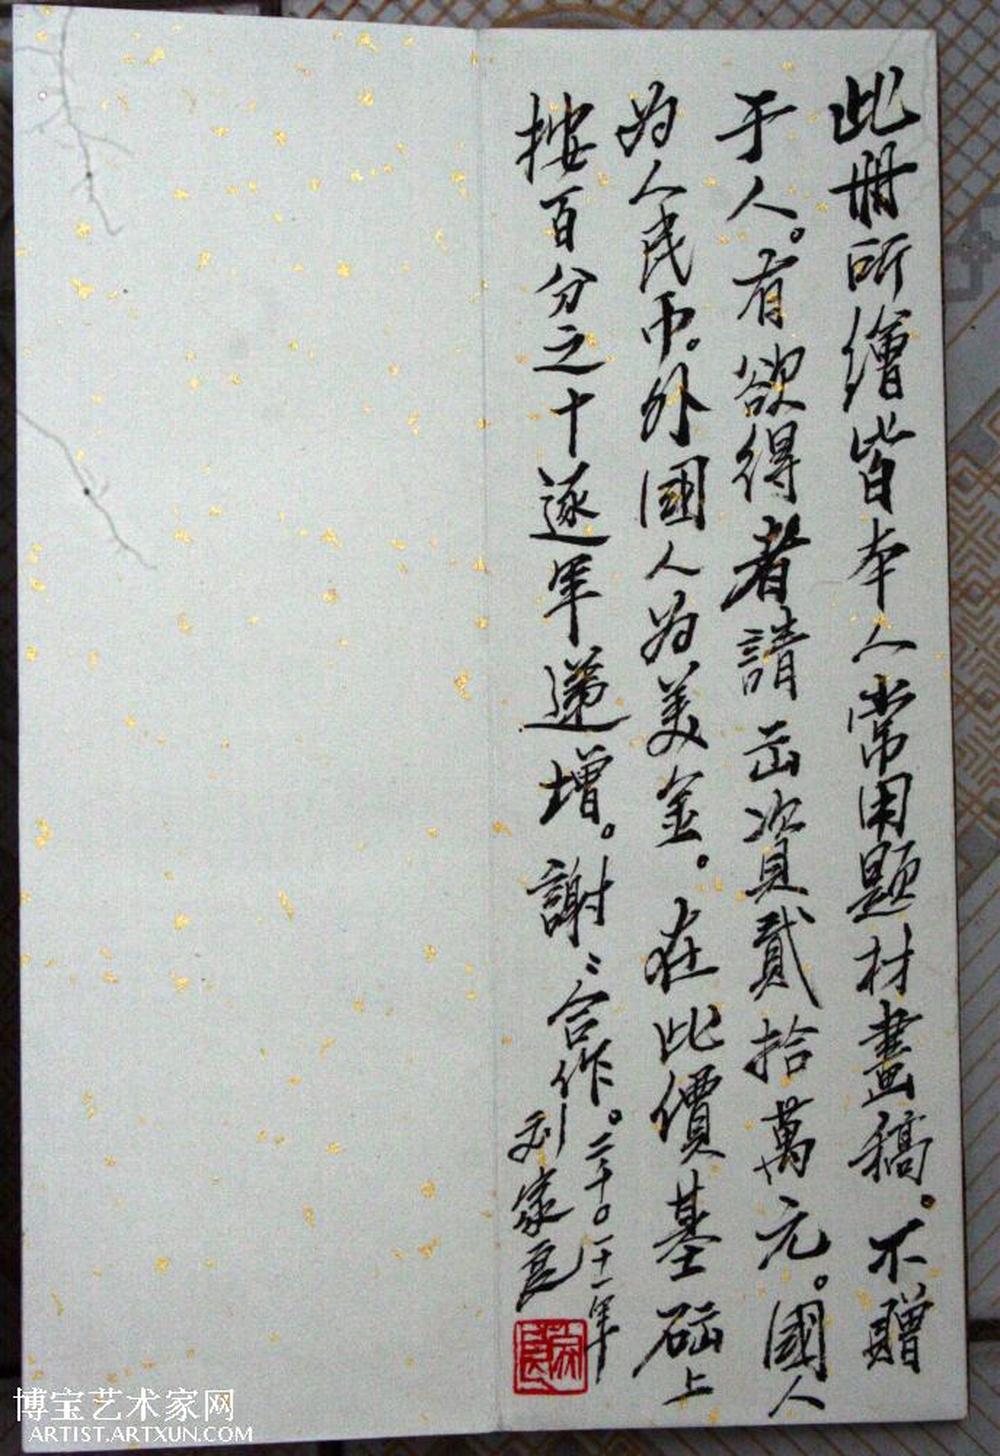 此冊所繪皆本人常用题材畫稿。不贈
于人。有欲得者請出資貳拾萬元。國人
为人民币。外國人为美金。在此價基础上
按百分之十逐年遞增。謝〻合作。
二千〇一十一年
刘家良
家良
博宝艺术家网
ARTIST.ARTXUN.COM